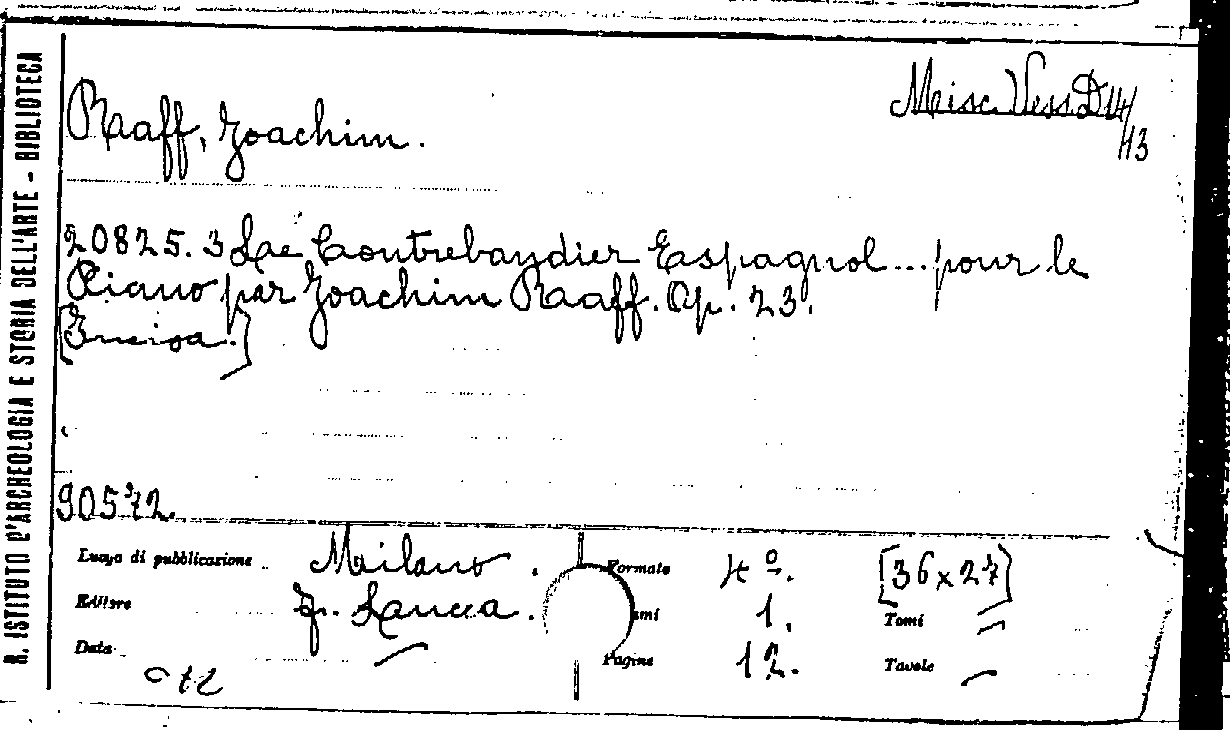 R. ISTITUTO D'ARCHEOLOGIA E STORIA DELL'ARTE - BIBLIOTECA
Misc. Vess. D 14/13
Raaff, Joachim.
20825.3 Le Contrebandier Espagnol... pour le
Piano par Joachim Raaff. Op. 23.
[Incisa.]
90572.
Luogo di pubblicazione Milano. Formato 4º. [36x27]
Editore F. Lucca. 1. Tomi
Data Pagine 12. Tavole